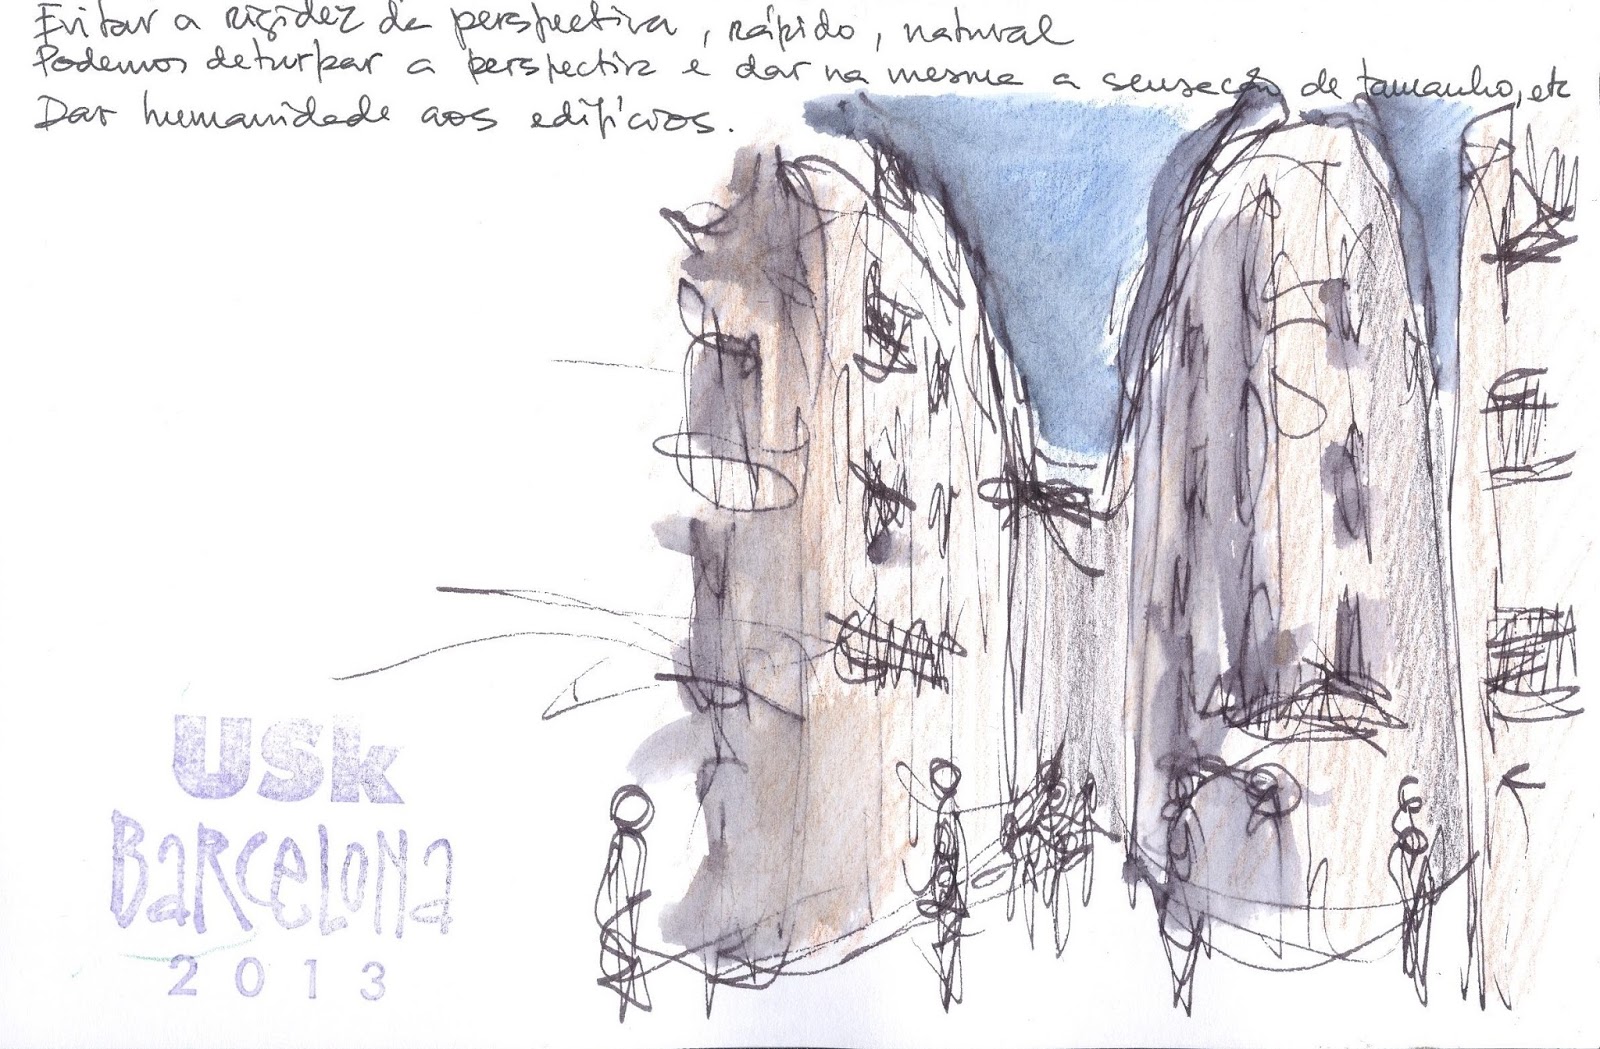 Evitar a rigidez da perspectiva, rápido, natural
Podemos deturpar a perspectiva e dar na mesma a sensação de tamanho, etc
Dar humanidade aos edifícios.
USk
BARCELONA
2013